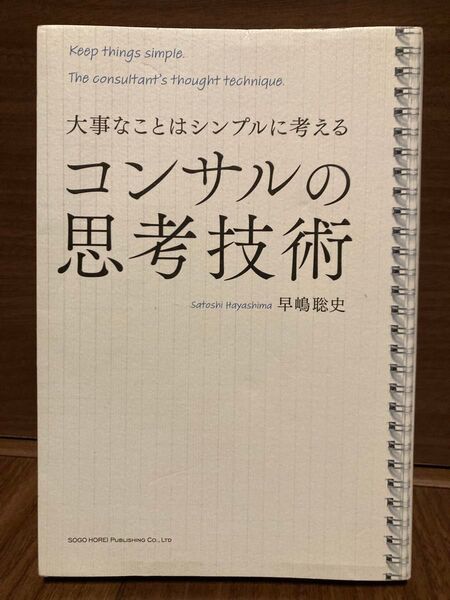 Keep things simple.
The consultant's thought technique.
大事なことはシンプルに考える
コンサルの
思考技術
Satoshi Hayashima 早嶋聡史
SOGO HOREI PUBLISHING CO., LTD